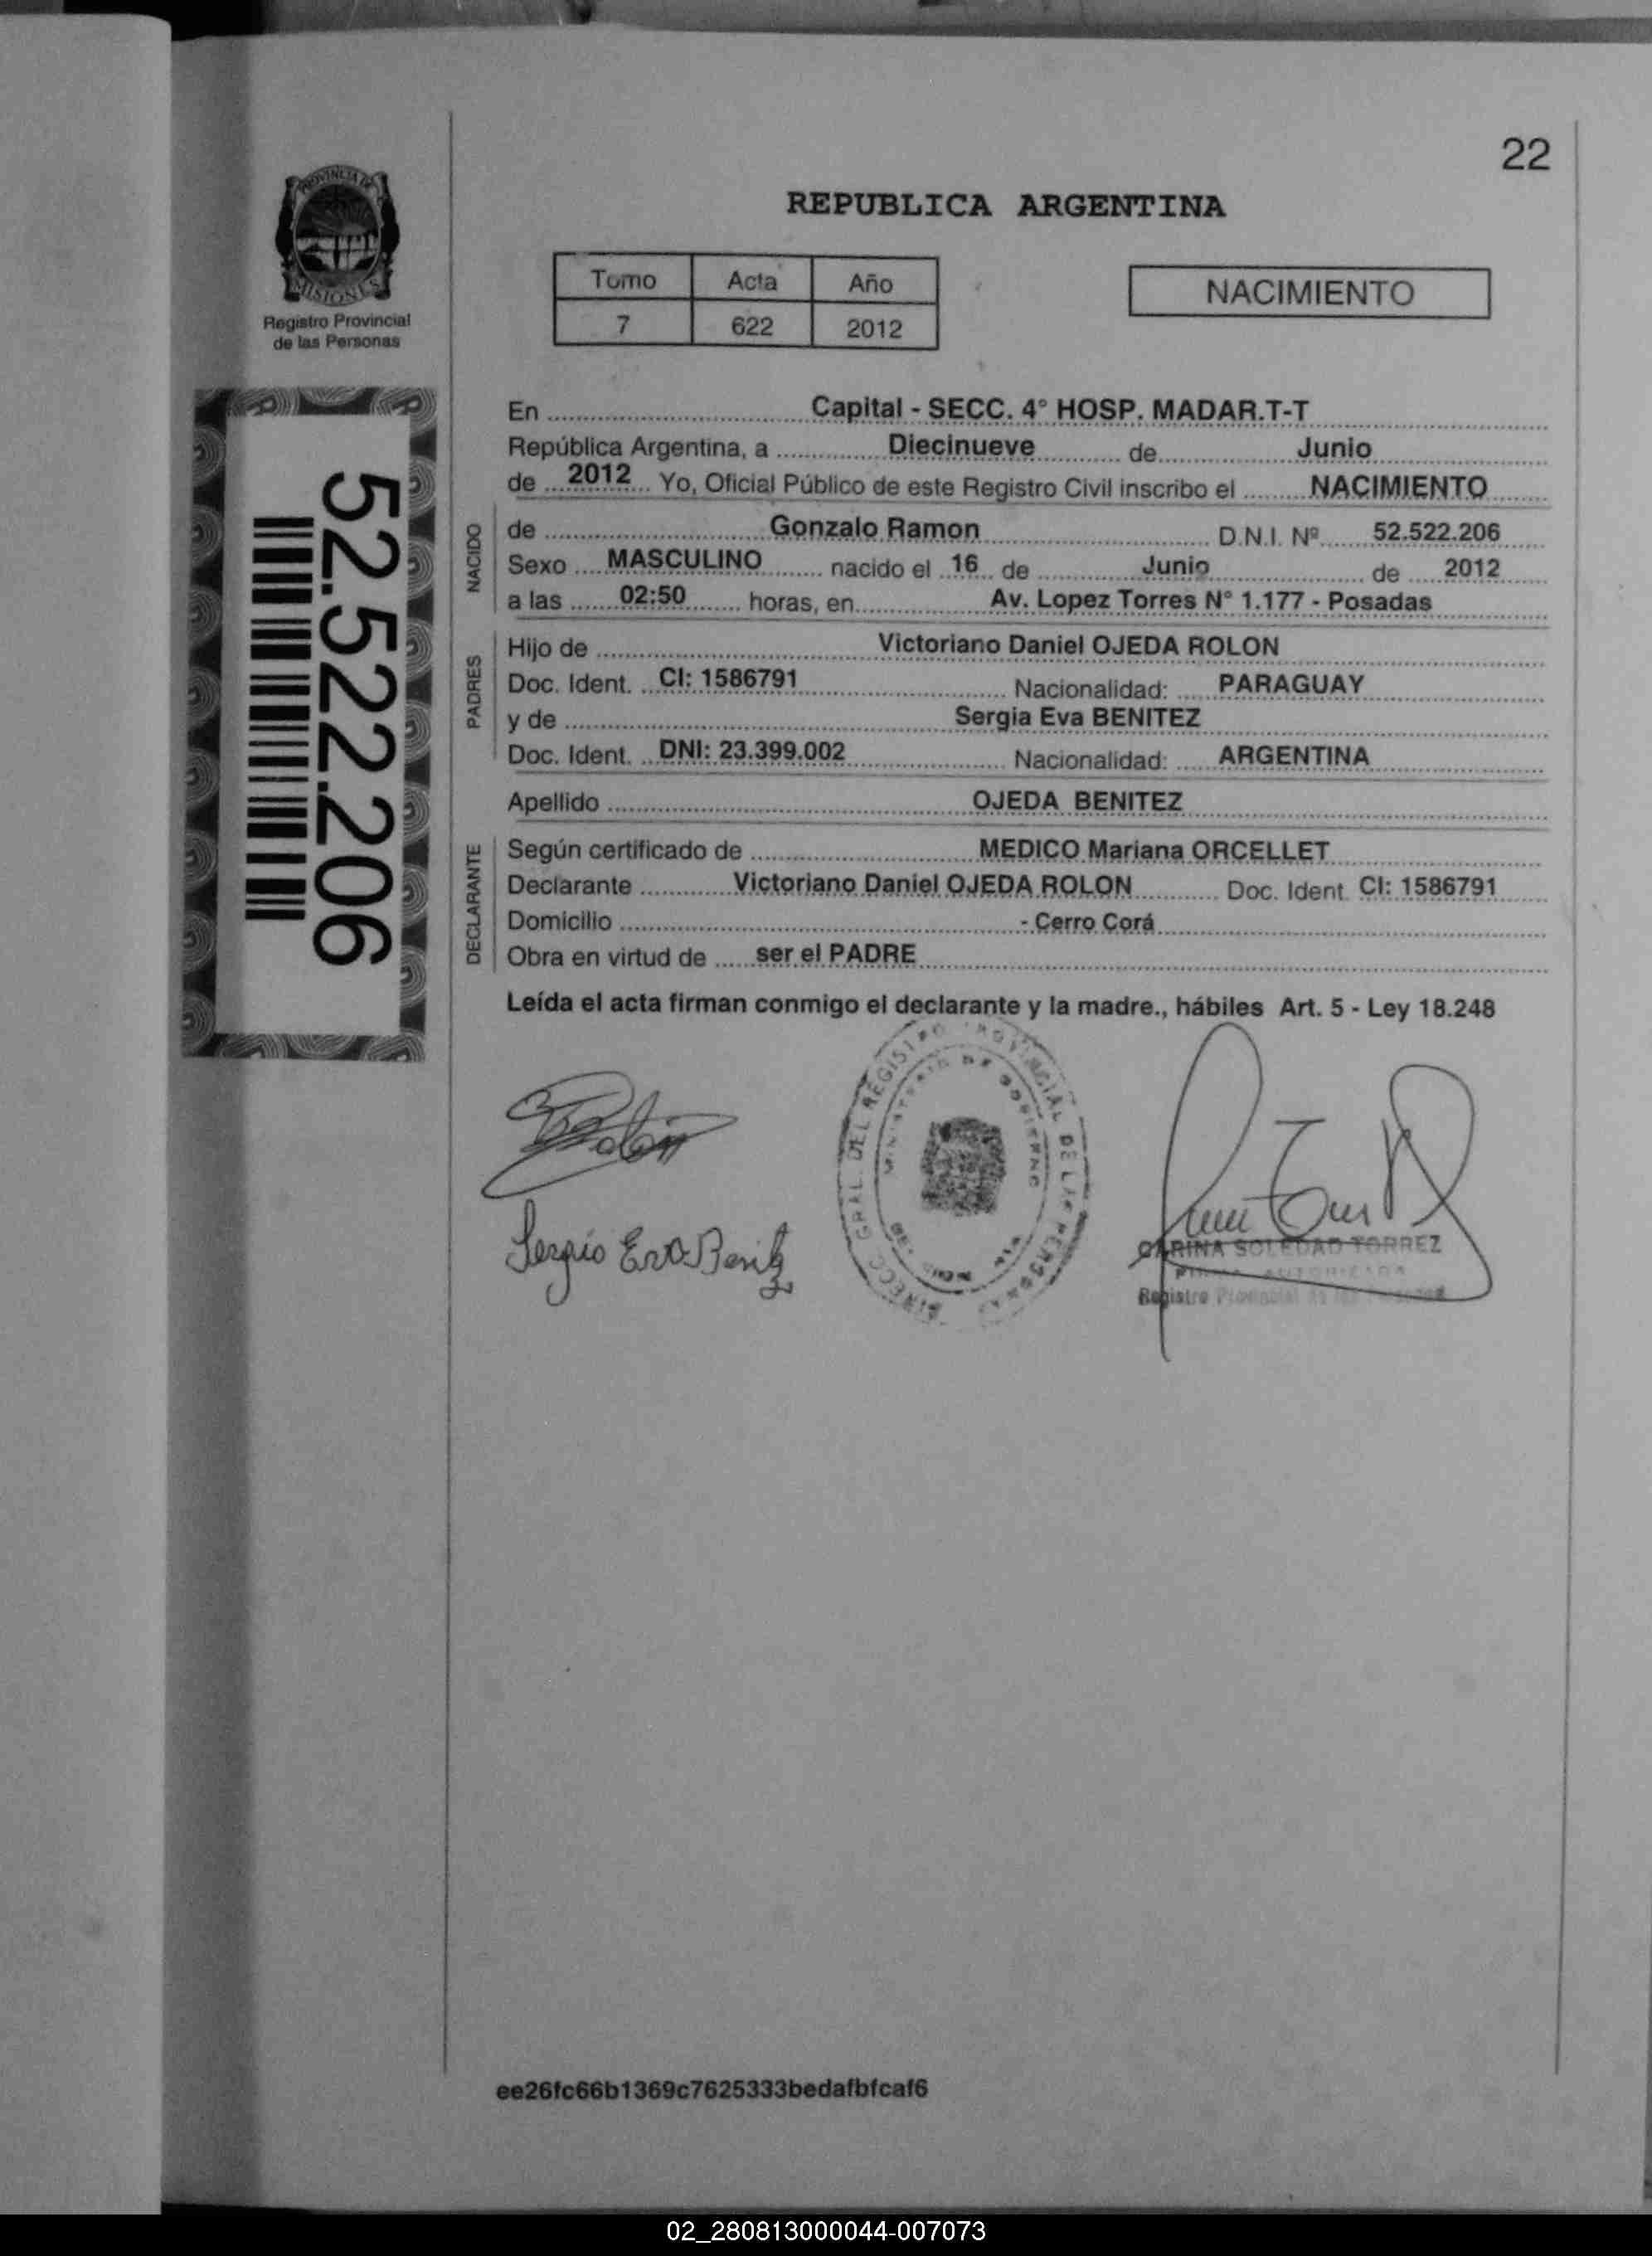 22
PROVINCIA DE
MISIONES
Registro Provincial
de las Personas
REPUBLICA ARGENTINA
Tomo Acta Año
7 622 2012
NACIMIENTO
52.522.206
En Capital - SECC. 4° HOSP. MADAR.T-T
República Argentina, a Diecinueve de Junio
de 2012 Yo, Oficial Público de este Registro Civil inscribo el NACIMIENTO
NACIDO
de Gonzalo Ramon D.N.I. Nº 52.522.206
Sexo MASCULINO nacido el 16 de Junio de 2012
a las 02:50 horas, en Av. Lopez Torres N° 1.177 - Posadas
PADRES
Hijo de Victoriano Daniel OJEDA ROLON
Doc. Ident. CI: 1586791 Nacionalidad: PARAGUAY
y de Sergia Eva BENITEZ
Doc. Ident. DNI: 23.399.002 Nacionalidad: ARGENTINA
Apellido OJEDA BENITEZ
DECLARANTE
Según certificado de MEDICO Mariana ORCELLET
Declarante Victoriano Daniel OJEDA ROLON Doc. Ident. CI: 1586791
Domicilio - Cerro Corá
Obra en virtud de ser el PADRE
Leída el acta firman conmigo el declarante y la madre., hábiles Art. 5 - Ley 18.248
DIRECC. GRAL. DEL REGISTRO PROVINCIAL DE LAS PERSONAS
MINISTERIO DE GOBIERNO
CARINA SOLEDAD TORREZ
FIRMA AUTORIZADA
Registro Provincial de las Personas
ee26fc66b1369c7625333bedafbfcaf6
02_280813000044-007073